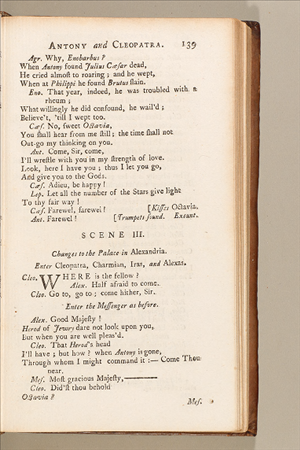 ANTONY and CLEOPATRA. 139
Agr. Why, Enobarbus?
When Antony found Julius Cæsar dead,
He cried almost to roaring; and he wept,
When at Philippi he found Brutus slain.
Eno. That year, indeed, he was troubled with a
rheum;
What willingly he did confound, he wail'd;
Believe't, 'till I wept too.
Cæs. No, sweet Octavia,
You shall hear from me still; the time shall not
Out-go my thinking on you.
Ant. Come, Sir, come,
I'll wrestle with you in my strength of love.
Look, here I have you; thus I let you go,
And give you to the Gods.
Cæs. Adieu, be happy!
Lep. Let all the number of the Stars give light
To thy fair way!
Cæs. Farewel, farewel! [Kisses Octavia.
Ant. Farewel! [Trumpets sound. Exeunt.
SCENE III.
Changes to the Palace in Alexandria.
Enter Cleopatra, Charmian, Iras, and Alexas.
Cleo. WHERE is the fellow?
Alex. Half afraid to come.
Cleo. Go to, go to; come hither, Sir.
Enter the Messenger as before.
Alex. Good Majesty!
Herod of Jewry dare not look upon you,
But when you are well pleas'd.
Cleo. That Herod's head
I'll have; but how? when Antony is gone,
Through whom I might command it:— Come Thou
near.
Mes. Most gracious Majesty,———
Cleo. Did'st thou behold
Octavia?
Mes.